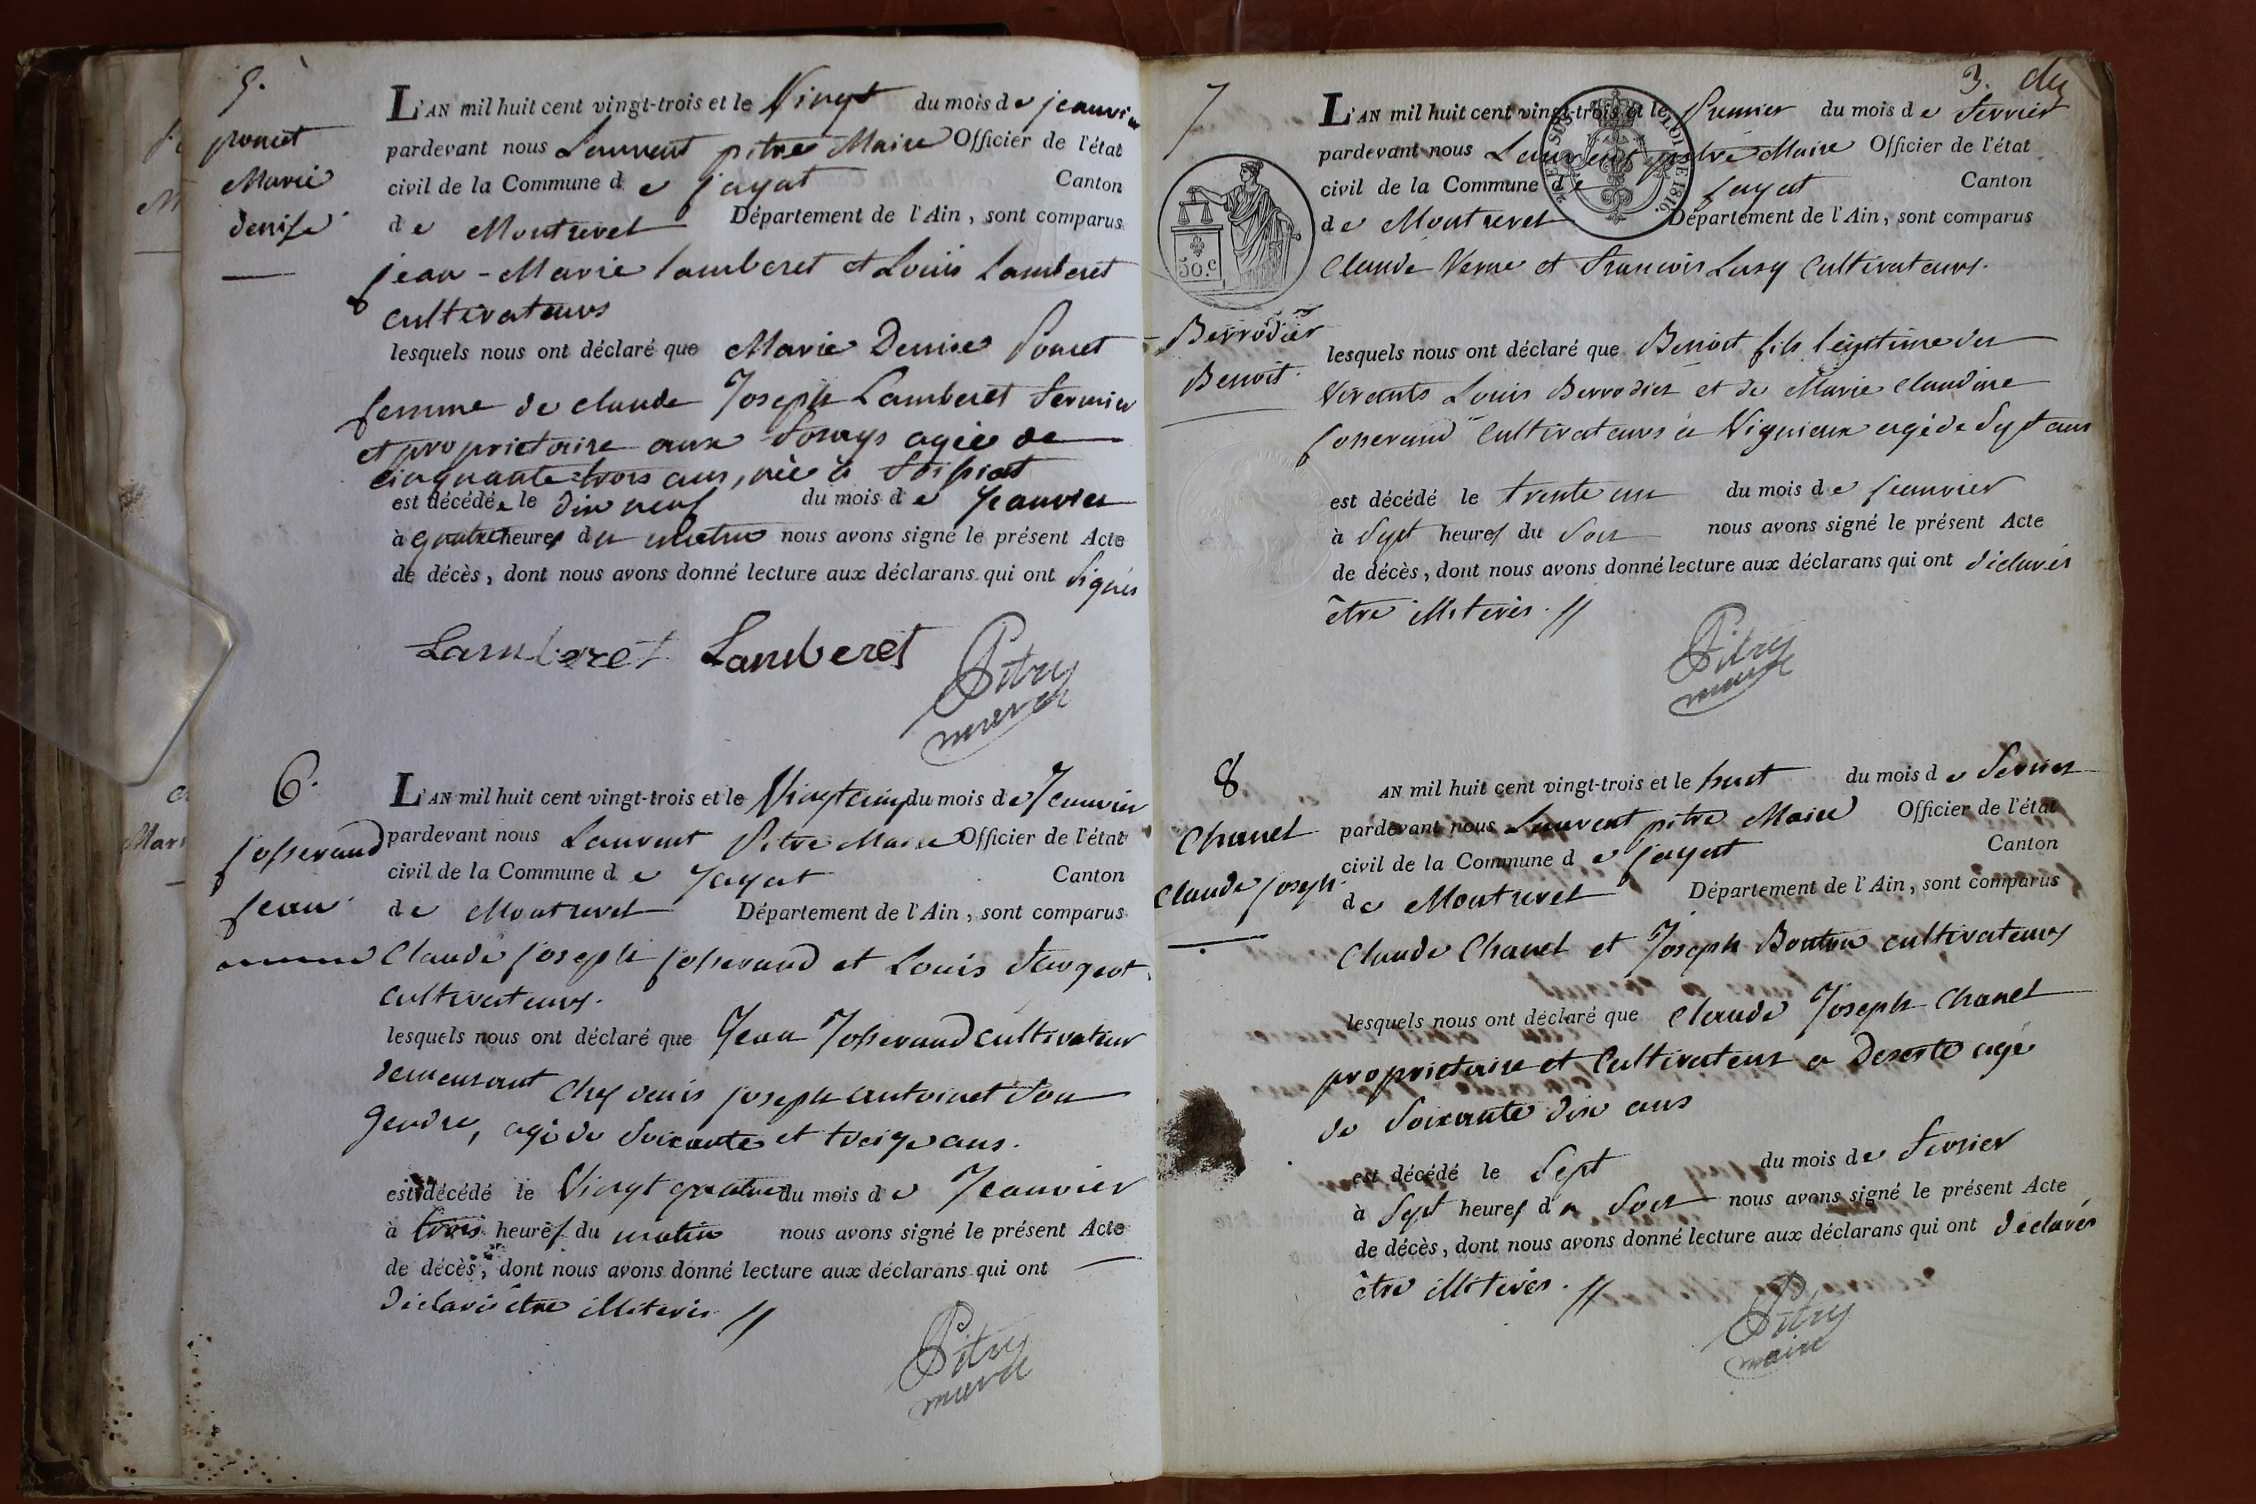 5.
poncet
Marie
denise
L'AN mil huit cent vingt-trois et le Vingt du mois de jeanvier
pardevant nous Laurent pitre Maire Officier de l'état
civil de la Commune de jayat Canton
de Montrevel Département de l'Ain, sont comparus
jean-Marie lamberet et Louis Lamberet
cultivateurs
lesquels nous ont déclaré que Marie Denise Poncet
femme de claude Joseph Lamberet fermier
et proprietaire aux agée de
cinquante trois ans, née à foissiat
est décédée le dix neuf du mois de Jeanvier
à quatre heures du matin nous avons signé le présent Acte
de décès, dont nous avons donné lecture aux déclarans qui ont signés
Lamberet Lamberet
Pitre
maire
6.
josserand
jean
L'AN mil huit cent vingt-trois et le Vingt cinq du mois de Jeanvier
pardevant nous Laurent Pitre Maire Officier de l'état
civil de la Commune de Jayat Canton
de Montrevel Département de l'Ain, sont comparus
Claude joseph josserand et Louis
cultivateurs.
lesquels nous ont déclaré que Jean Josserand cultivateur
demeurant chez denis joseph antoinet son
gendre, agé de soixante et treize ans.
est décédé le Vingt quatre du mois de Jeanvier
à trois heures du matin nous avons signé le présent Acte
de décès, dont nous avons donné lecture aux déclarans qui ont
déclaré être illiterés //
Pitre
maire
3. du
7
50.C
LOI DE 1816.
Berrodier
Benoit.
L'AN mil huit cent vingt-trois et le Premier du mois de fevrier
pardevant nous Laurent pitre Maire Officier de l'état
civil de la Commune de jayat Canton
de Montrevel Département de l'Ain, sont comparus
Claude Verne et francois Lasy Cultivateurs.
lesquels nous ont déclaré que Benoit fils légitime des
vivants Louis Berrodier et de Marie claudine
josserand Cultivateurs à Vignieux agé de Sept ans
est décédé le trente un du mois de jeanvier
à Sept heures du Soir nous avons signé le présent Acte
de décès, dont nous avons donné lecture aux déclarans qui ont déclarés
être illiterés. //
Pitre
maire
8
Chanel
Claude joseph.
AN mil huit cent vingt-trois et le huit du mois de fevrier
pardevant nous Laurent pitre Maire Officier de l'état
civil de la Commune de jayat Canton
de Montrevel Département de l'Ain, sont comparus
Claude Chanel et Joseph Bouton cultivateurs
lesquels nous ont déclaré que Claude Joseph Chanel
proprietaire et Cultivateur a Deserte agé
de Soixante dix ans
est décédé le Sept du mois de fevrier
à Sept heures du Soir nous avons signé le présent Acte
de décès, dont nous avons donné lecture aux déclarans qui ont déclarés
être illiterés. //
Pitre
maire